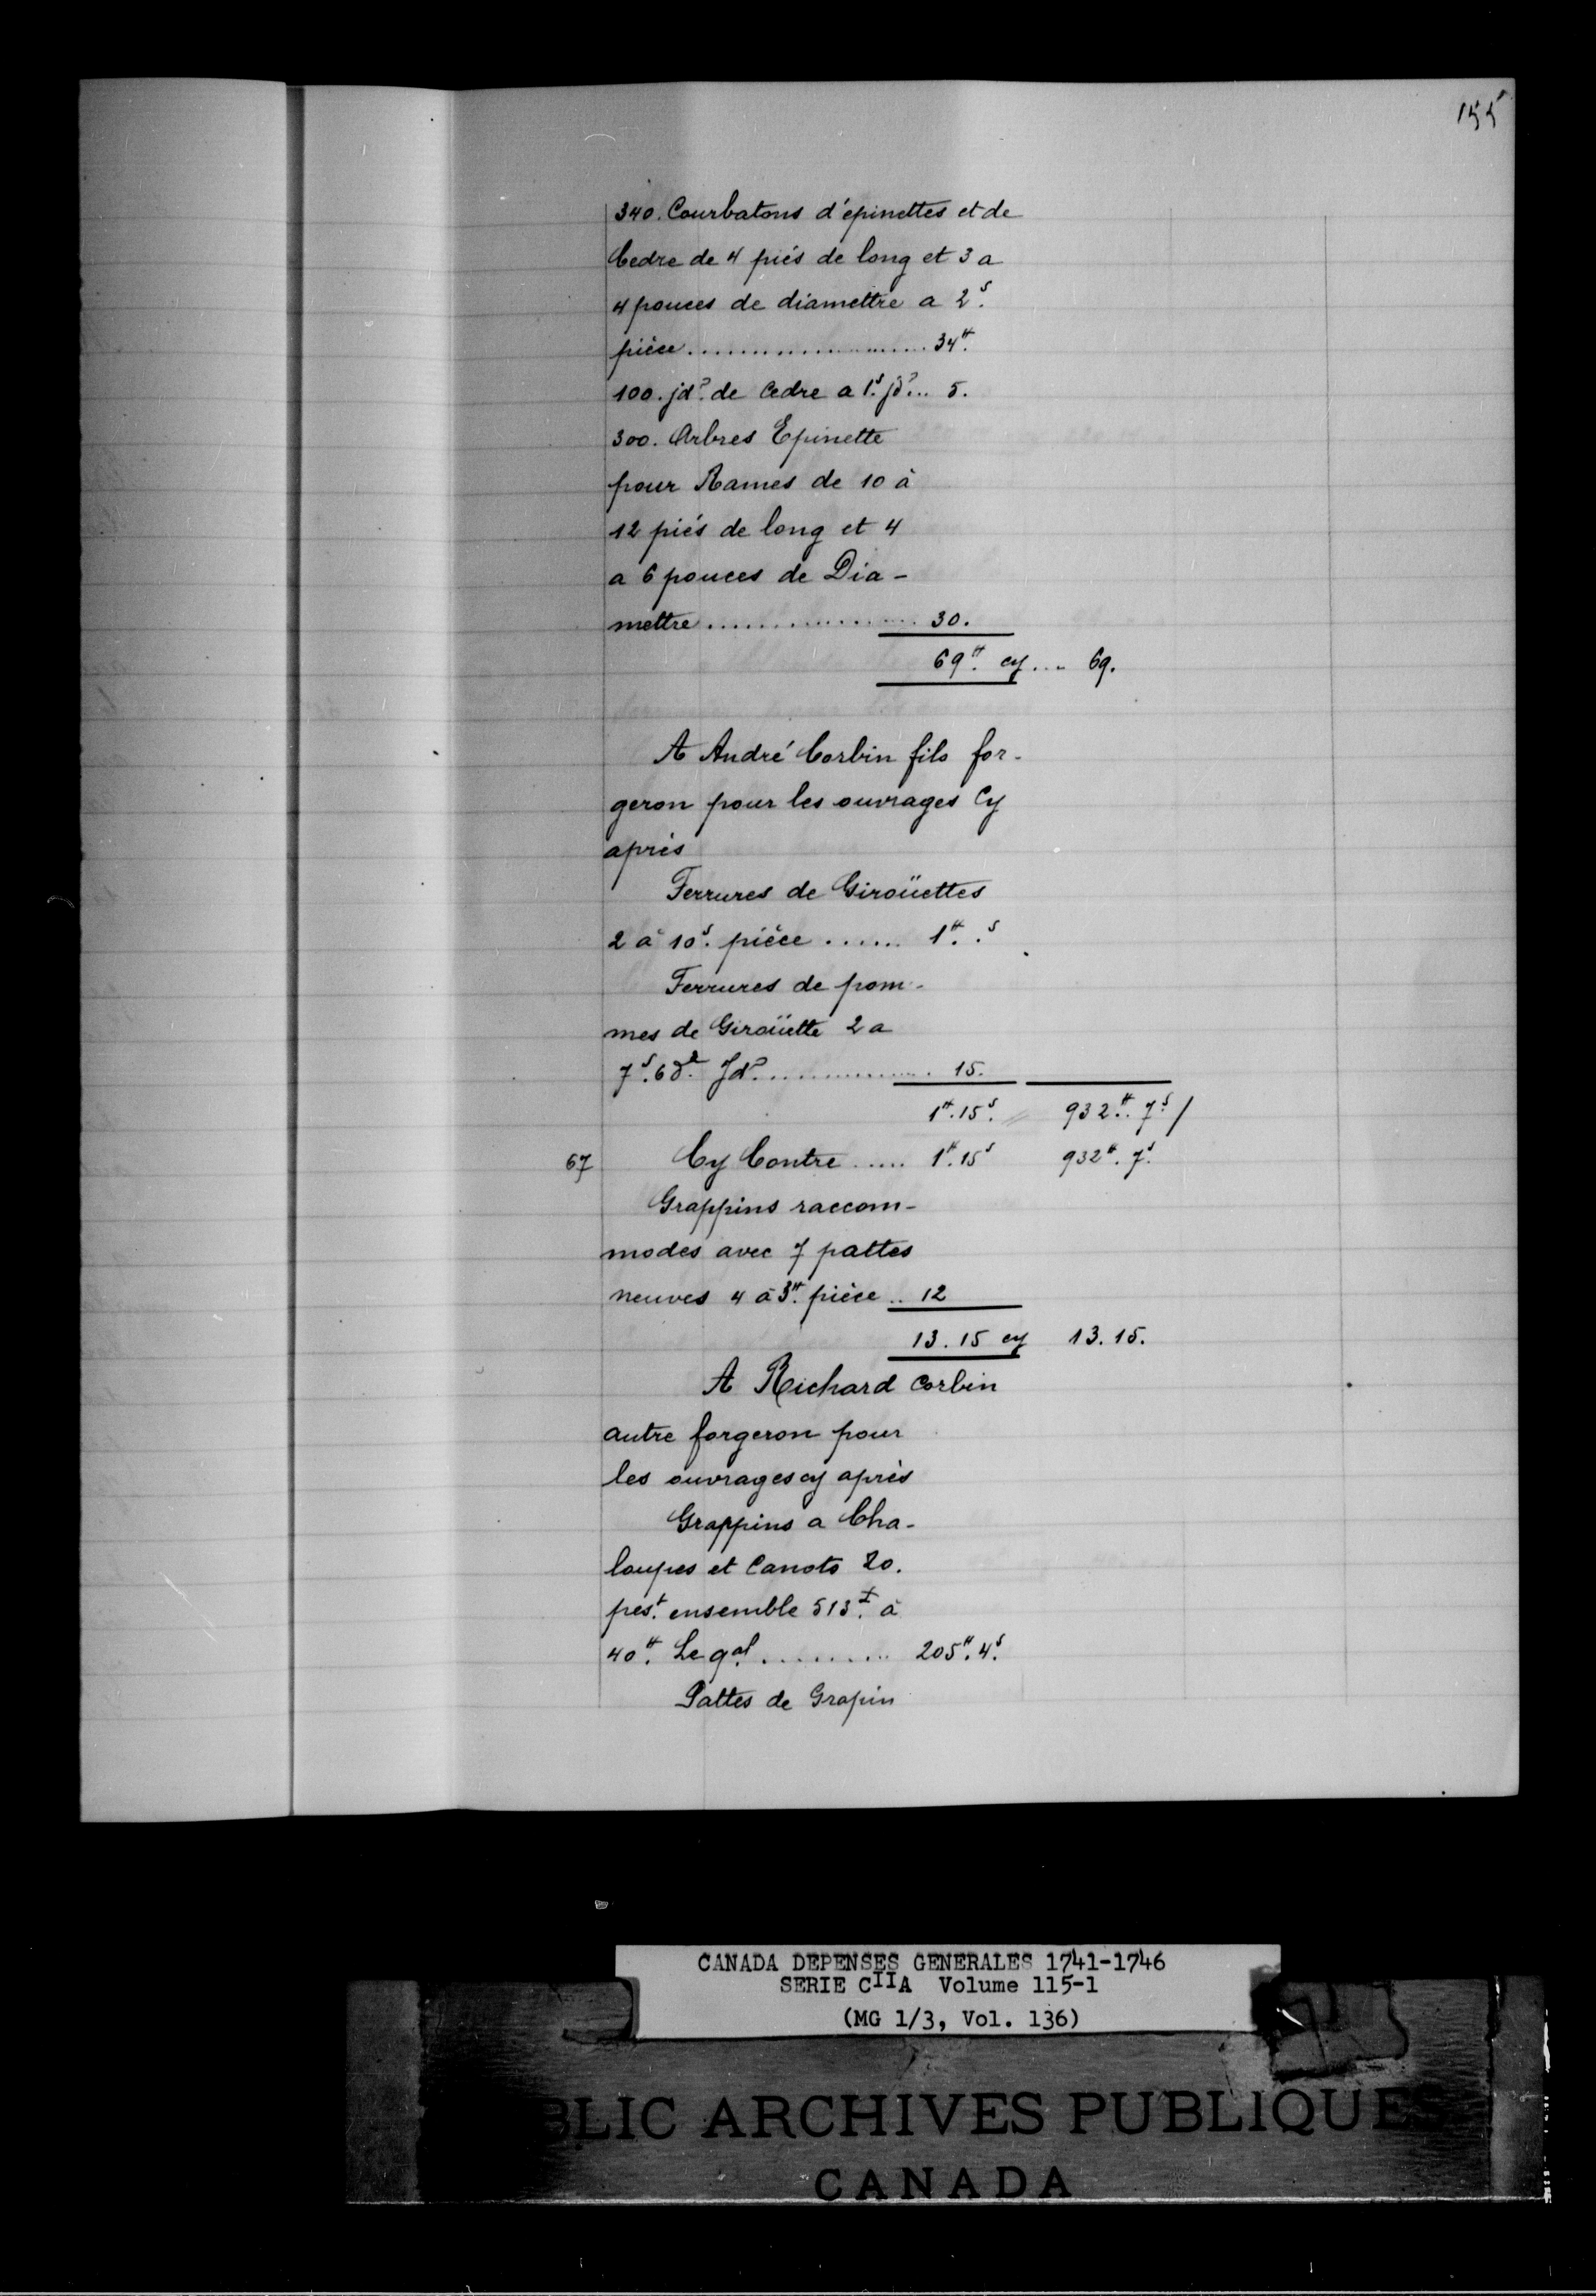 155
340. Courbatons d'épinettes et de
Cedre de 4 piés de long et 3 a
4 pouces de diamettre a 2s.
pièce........................34#.
100. jdo. de Cedre a 1s. jdo... 5.
300. Arbres Epinette
pour Rames de 10 à
12 piés de long et 4
a 6 pouces de Dia-
mettre.................... 30.
69#. cy.... 69.
A André Corbin fils for-
geron pour les ouvrages Cy
après
Ferrures de Giroüettes
2 à 10s. pièce ....... 1#. .s
Ferrures de pom-
mes de Giroüette 2 a
7s. 6d. Jdo................. 15.
1#. 15s. 932#. 7s /
67 Cy Contre ..... 1#. 15s 932#. 7s.
Grappins raccom-
modés avec 7 pattes
neuves 4 à 3#. pièce .. 12
13. 15 cy 13. 15.
A Richard Corbin
autre forgeron pour
les ouvrages cy après
Grappins a Cha-
loupes et Canots 20.
pest. ensemble 513#. à
40#. Le qal. ......... 205#. 4s.
Pattes de Grapin
CANADA DEPENSES GENERALES 1741-1746
SERIE CIIA Volume 115-1
(MG 1/3, Vol. 136)
BLIC ARCHIVES PUBLIQUES
CANADA